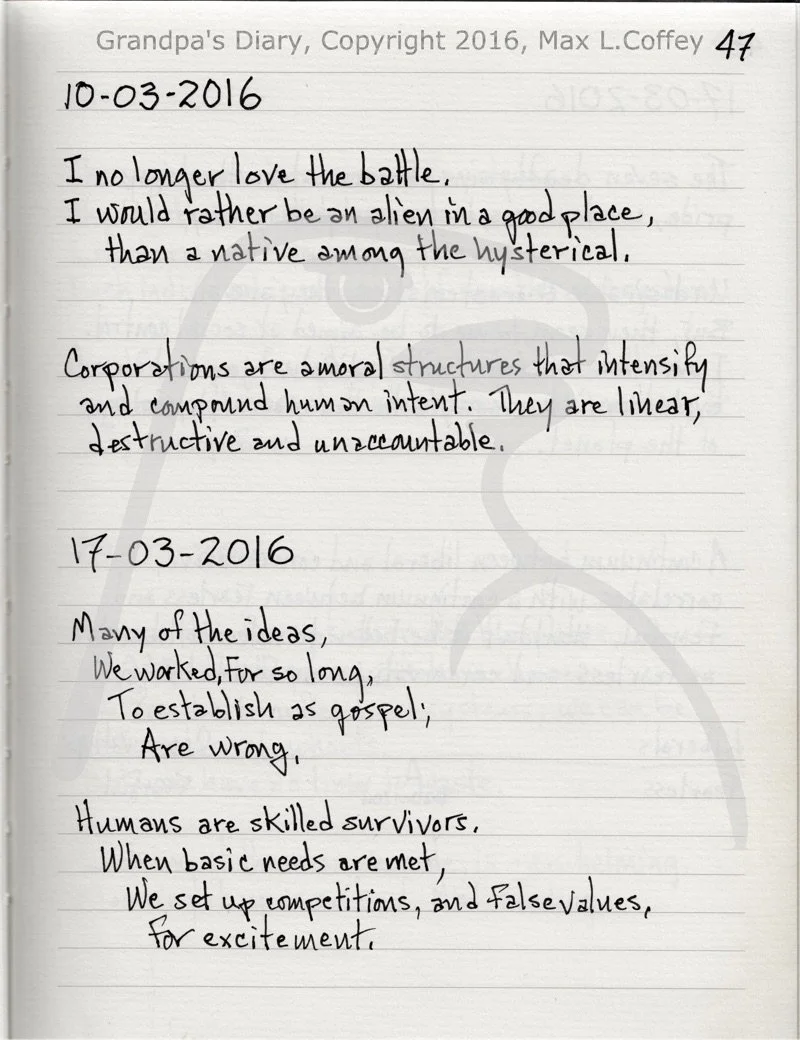 Grandpa's Diary, Copyright 2016, Max L.Coffey 47
10-03-2016
I no longer love the battle.
I would rather be an alien in a good place,
than a native among the hysterical.
Corporations are amoral structures that intensify
and compound human intent. They are linear,
destructive and unaccountable.
17-03-2016
Many of the ideas,
We worked, For so long,
To establish as gospel;,
Are wrong.
Humans are skilled survivors.
When basic needs are met,
We set up competitions, and False values,
For excitement.